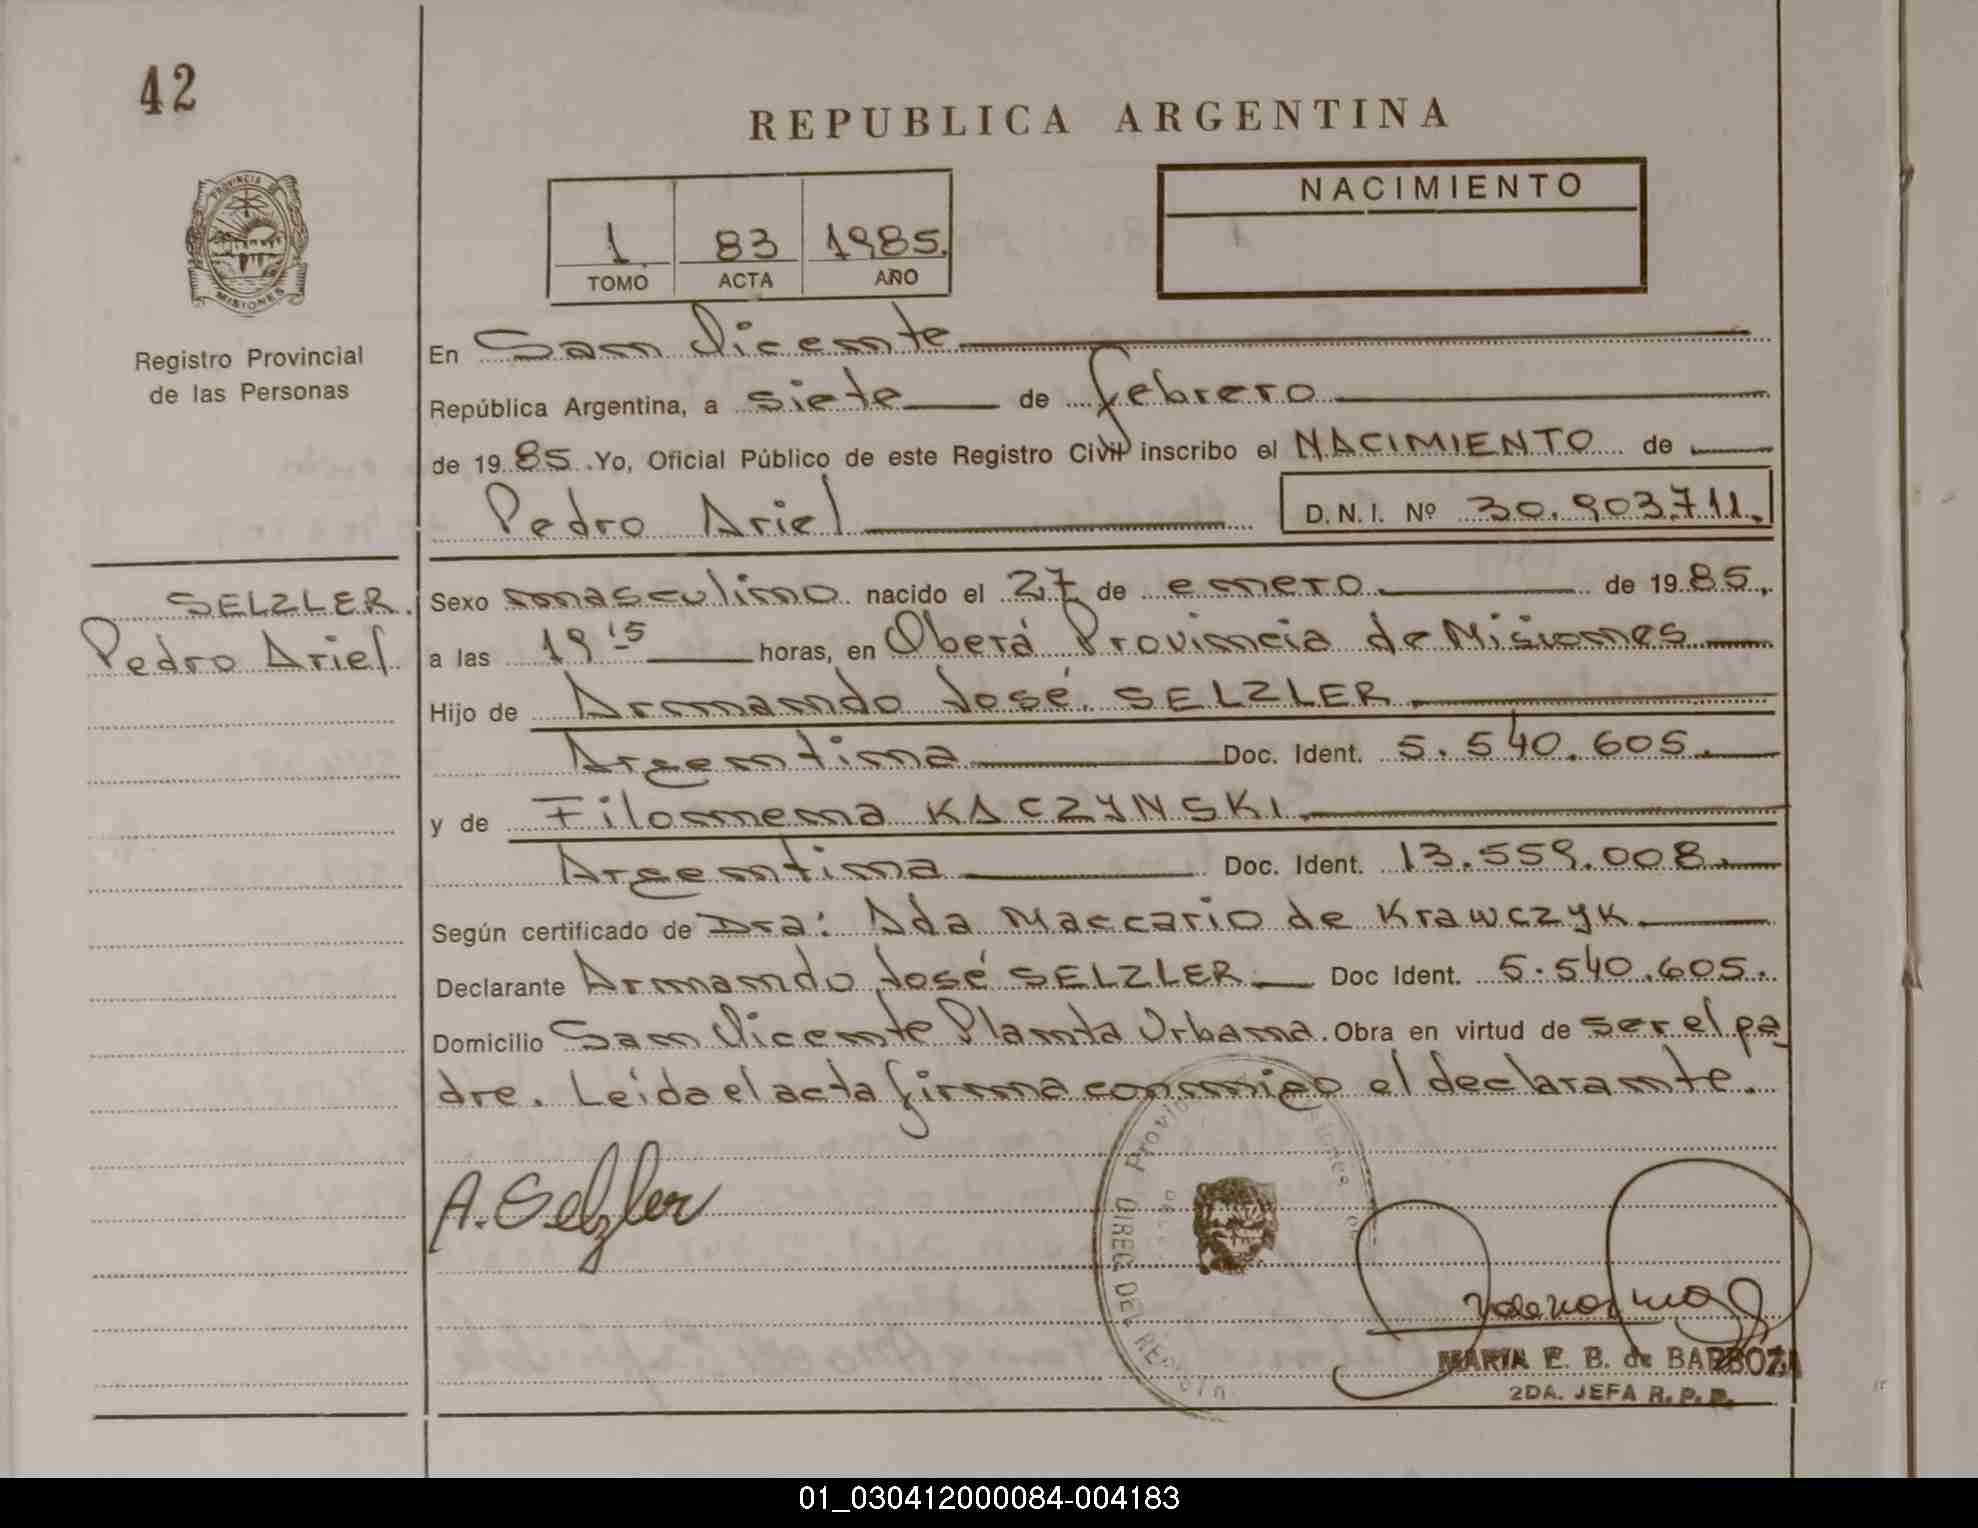 42
REPUBLICA ARGENTINA
PROVINCIA DE
MISIONES
Registro Provincial
de las Personas
1 83 1985.
TOMO ACTA AÑO
NACIMIENTO
En San Vicente
República Argentina, a siete de febrero
de 1985. Yo, Oficial Público de este Registro Civil inscribo el NACIMIENTO de
Pedro Ariel D.N.I. Nº 30.903.711.
SELZLER.
Pedro Ariel
Sexo masculino nacido el 27 de enero de 1985.
a las 19 15 horas, en Oberá Provincia de Misiones
Hijo de Armando José SELZLER
Argentina Doc. Ident. 5.540.605.
y de Filomena KACZYNSKI.
Argentina Doc. Ident. 13.559.008.
Según certificado de Dra: Ada Maccario de Krawczyk.
Declarante Armando José SELZLER Doc Ident. 5.540.605.
Domicilio San Vicente Planta Urbana. Obra en virtud de ser el pa
dre. Leída el acta firma conmigo el declarante.
A. Selzler
DIREC. DEL
MARIA E. B. de BARBOZA
2DA. JEFA R. P. P.
01_030412000084-004183